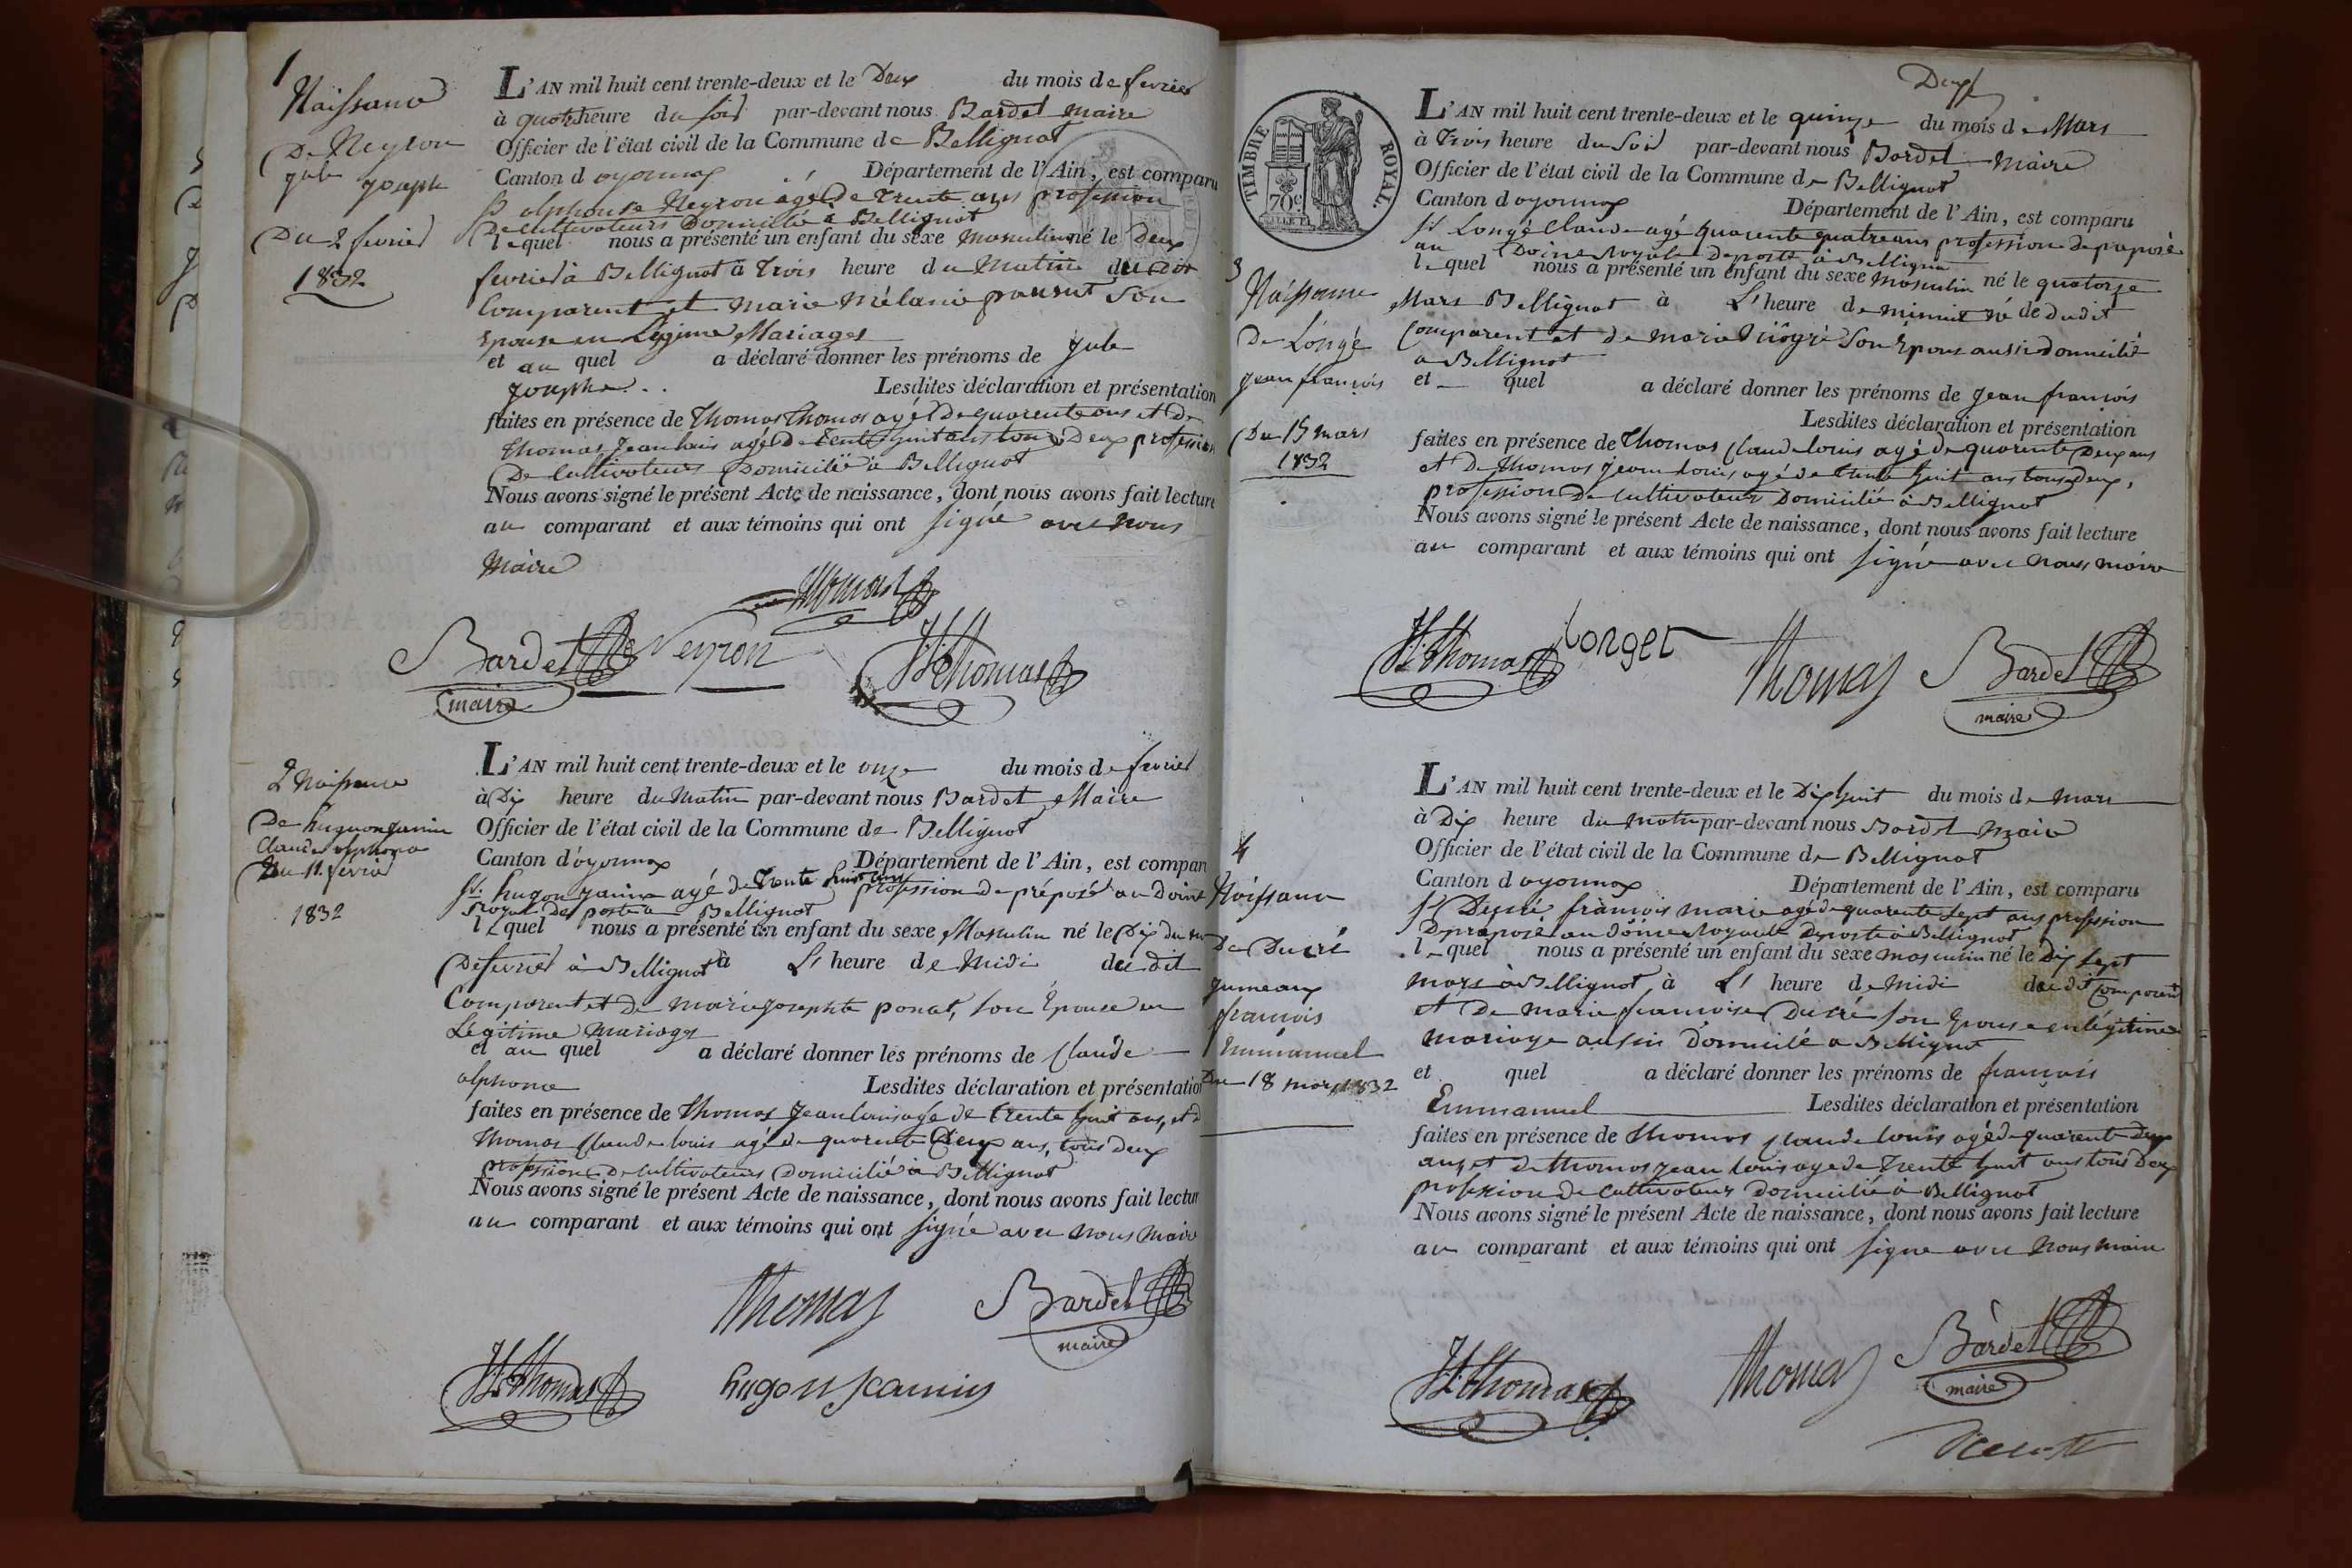 1
Naissance
De Neyron
jule joseph
Du 2 fevrier
1832
L'AN mil huit cent trente-deux et le Deux du mois de fevrier
à quatre heure du soir par-devant nous Bardet maire
Officier de l'état civil de la Commune de Bellignat
Canton d oyonnax Département de l'Ain, est comparu
Sr alphonse Neyron agé De trente ans profession
De cultivateurs Domicilié à Bellignat
lequel nous a présenté un enfant du sexe masculin né le Deux
fevrier à Bellignat à trois heure du Matin du dit
Comparent et marie Mélanie son
Epouse en Légime Mariages
et au quel a déclaré donner les prénoms de jule
josephe. Lesdites déclaration et présentation
faites en présence de Thomas Thomas agé De quarente ans et De
Thomas Jean louis agé De trente huit ans tous Deux profession
De Cultivateurs Domicilié à Bellignat
Nous avons signé le présent Acte de naissance, dont nous avons fait lecture
au comparant et aux témoins qui ont signé avec nous
Maire
Thomas
Bardet Neyron JL Thomas
maire
2 Naissance
De hugonjannin
Claude alphonse
Du 11 fevrier
1832
L'AN mil huit cent trente-deux et le onze du mois de fevrier
à Dix heure du Matin par-devant nous Bardet Maire
Officier de l'état civil de la Commune de Bellignat
Canton d'oyonnax Département de l'Ain, est compar
Sr. hugonjanin agé de trente huit ans profession de préposé au Doine
royale De poste a Bellignat
lequel nous a présenté un enfant du sexe Masculin né le Dix du
De fevrier à Bellignat à L' heure de Midi du dit
Comparent et de marie josephte ponat, son Epouse en
Légitime mariages
et au quel a déclaré donner les prénoms de Claude
alphonse Lesdites déclaration et présentation
faites en présence de Thomas Jean louis agé de trente huit ans, et de
Thomas Claude louis agé de quarente Deux ans, tous deux
profession De cultivateurs Domicilié à Bellignat
Nous avons signé le présent Acte de naissance, dont nous avons fait lectur
au comparant et aux témoins qui ont signé avec nous Maire
Thomas Bardet
maire
JL Thomas hugon jeannin
Deux
TIMBRE ROYAL.
70c
L'AN mil huit cent trente-deux et le quinze du mois de Mars
à trois heure du Soir par-devant nous Bardet Maire
Officier de l'état civil de la Commune de Bellignat
Canton d oyonnax Département de l'Ain, est comparu
Sr Longé Claude agé quarente quatre ans profession de préposé
au Doine royale De poste à Bellignat
lequel nous a présenté un enfant du sexe masculin né le quatorze
3
Naissance
De Longé
jean francois
Du 15 mars
1832
Mars Bellignat à L' heure de minuit né de dudit
Comparent et de marie son Epouse aussi domicilié
a Bellignat
et quel a déclaré donner les prénoms de jean francois
Lesdites déclaration et présentation
faites en présence de Thomas Claude louis agé de quarente Deux ans
et De thomas jean louis agé de trente huit ans tous deux,
profession De cultivateur Domicilié à Bellignat
Nous avons signé le présent Acte de naissance, dont nous avons fait lecture
au comparant et aux témoins qui ont signé avec nous maire
JL Thomas Longer Thomas Bardet
maire
L'AN mil huit cent trente-deux et le Dix huit du mois de Mars
à Dix heure du matin par-devant nous Bardet Maire
Officier de l'état civil de la Commune de Bellignat
Canton d oyonnax Département de l'Ain, est comparu
Sr Ducré francois marie agé de quarente sept ans profession
De préposé au doine royale De poste à Bellignat
lequel nous a présenté un enfant du sexe masculin né le Dix sept
4
Naissance
De Ducré
jumeaux
francois
Emmanuel
Du 18 mars 1832
mars à Bellignat à L' heure de Midi du dit Comparent
et De marie francoise Ducré son Epouse en légitime
mariage aussi domicilé a Bellignat
et quel a déclaré donner les prénoms de francois
Emmanuel Lesdites déclaration et présentation
faites en présence de thomas Claude louis agé de quarente deux
ans, et De thomas jean louis agé de trente huit ans tous Deux
profession De Cultivateur Domicilié à Bellignat
Nous avons signé le présent Acte de naissance, dont nous avons fait lecture
au comparant et aux témoins qui ont signé avec nous maire
JL Thomas Thomas Bardet
maire